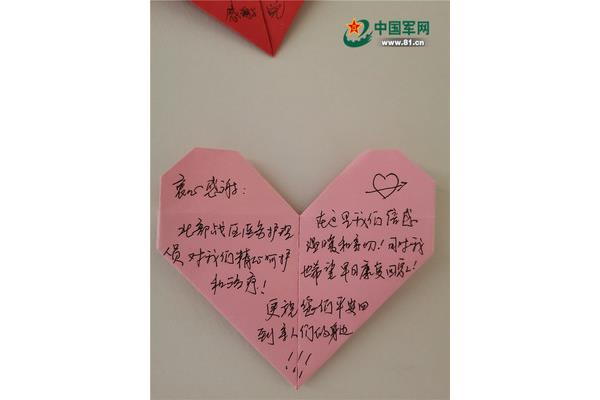 感谢
中国军网
www.81.cn
衷心感谢：
北部战区医务护理
员对我们精心呵护
和治疗！
在这里我们倍感
温暖和亲切！同时我
也希望早日康复回家！
更祝您们平安回
到亲人们的身边
!!!